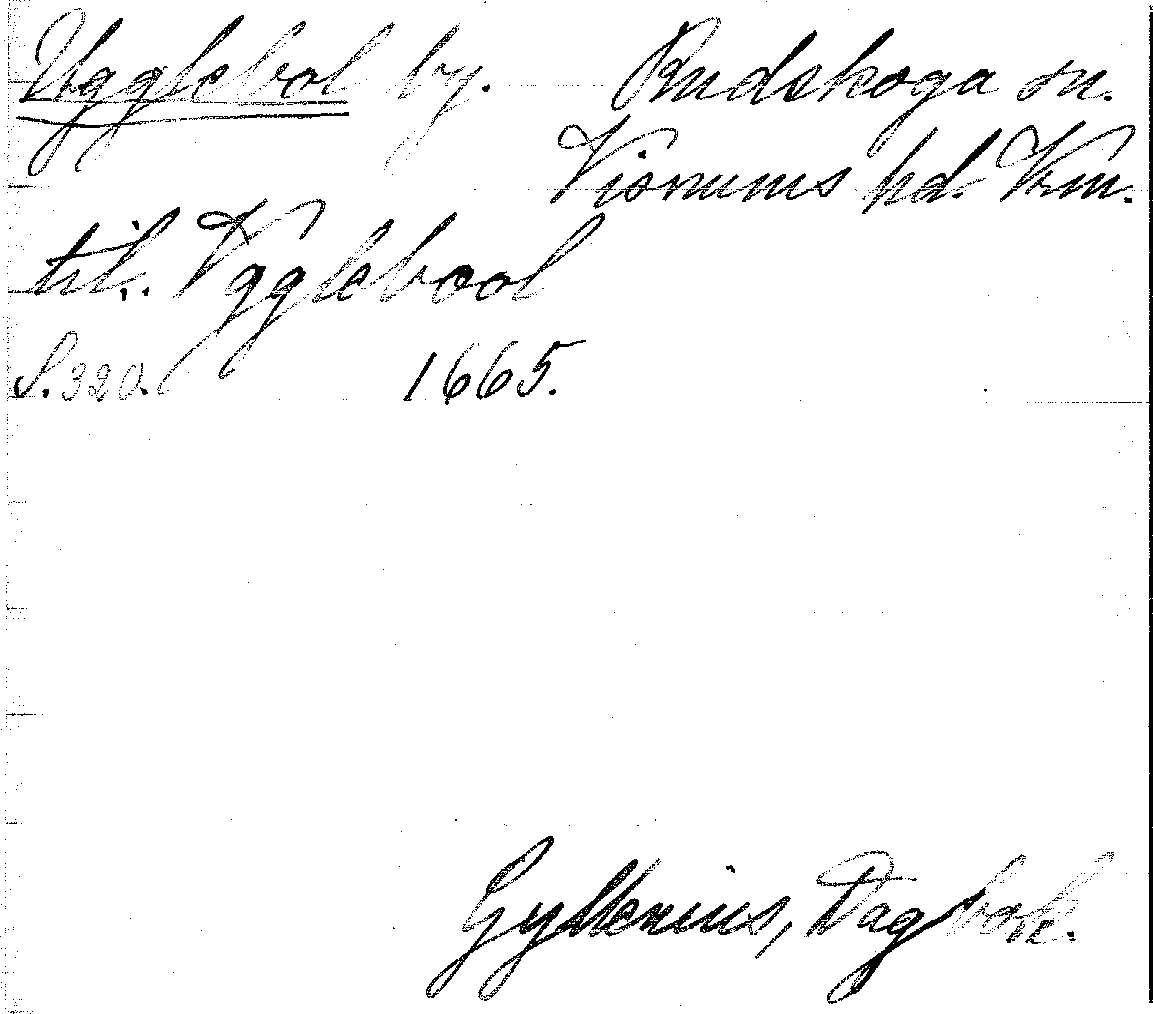 Ugglebol by. Rudskoga sn.
Visnums hd. Vrm.
til. Vgglebool
S. 320. 1665.
Gyllenius, Dagbok.